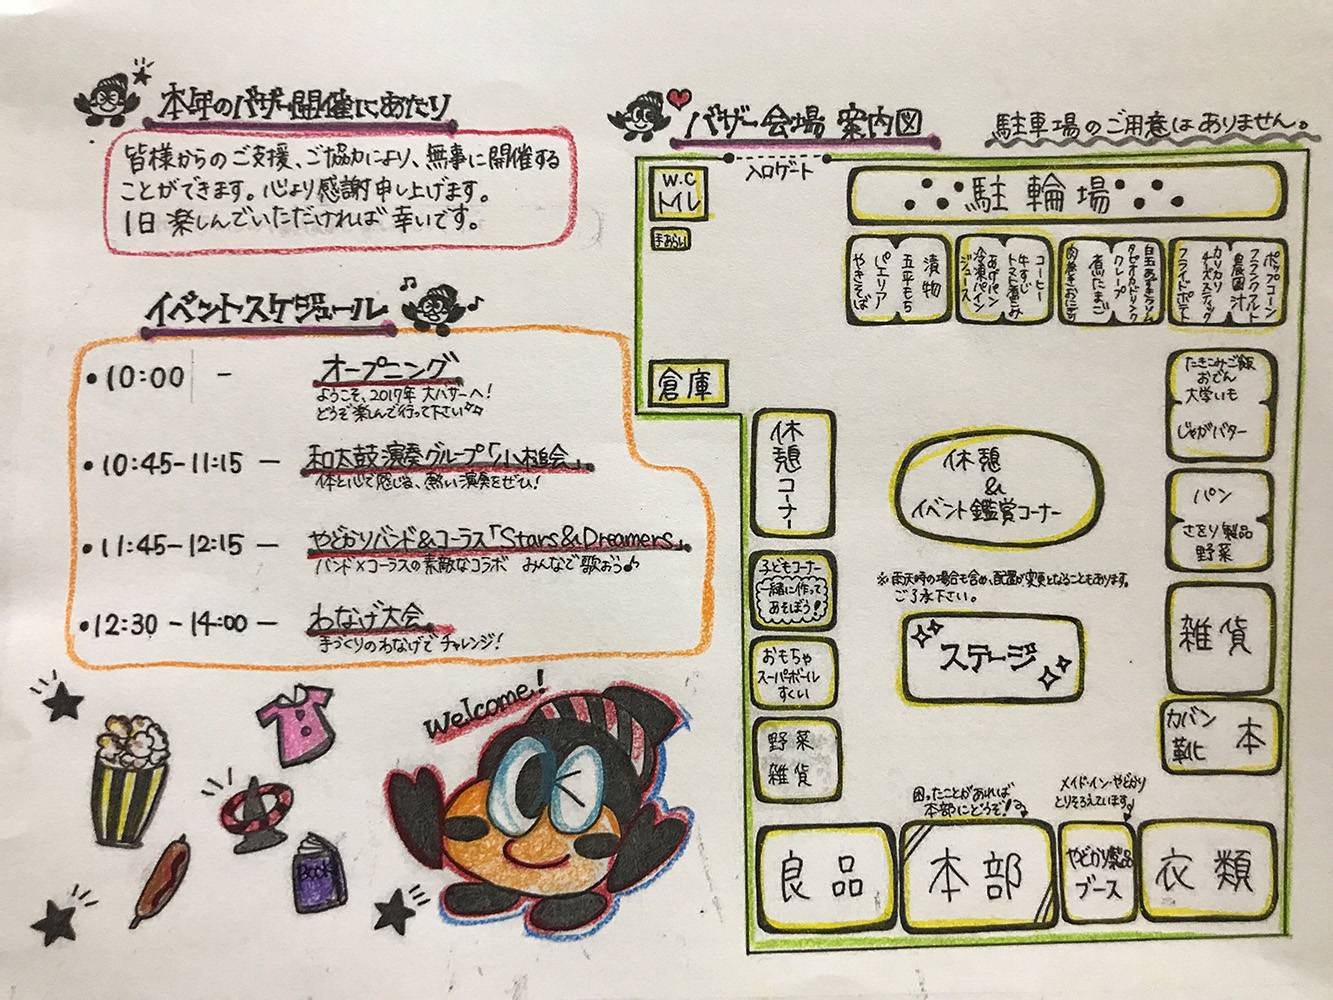 本年のバザー開催にあたり
皆様からのご支援、ご協力により、無事に開催する
ことができます。心より感謝申し上げます。
1日楽しんでいただければ幸いです。
イベントスケジュール
•10:00 - オープニング
ようこそ、2017年 大バザーへ!
どうぞ楽しんで行って下さい
•10:45-11:15 - 和太鼓演奏グループ「小槌会」
体と心で感じる、熱い演奏をぜひ!
•11:45-12:15 - やどかりバンド&コーラス「Stars&Dreamers」
バンド×コーラスの素敵なコラボ みんなで歌おう♪
•12:30-14:00 - わなげ大会
手づくりのわなげでチャレンジ!
Welcome!
BOOK
バザー会場 案内図
駐車場のご用意はありません。
入口ゲート
W.C
トイレ
手あらい
駐輪場
漬物
五平もち
パエリア
やきそば
コーヒー
牛すじ
トマト煮こみ
あげパン
冷凍パイン
ジュース
白玉あずき
タピオカドリンク
クレープ
煮たまご
肉巻きおにぎり
ポップコーン
フランクフルト
農園汁
カリカリ
チーズスティック
フライドポテト
倉庫
たきこみご飯
おでん
大学いも
じゃがバター
休憩コーナー
休憩
&
イベント鑑賞コーナー
パン
さをり製品
野菜
子どもコーナー
一緒に作って
あそぼう!
※雨天時の場合も含め、配置が変更となることもあります。
ご了承下さい。
雑貨
おもちゃ
スーパーボール
すくい
ステージ
カバン
靴
本
野菜
雑貨
困ったことがあれば
本部にどうぞ!
メイド・イン・やどかり
とりそろえています
良品
本部
やどかり製品
ブース
衣類